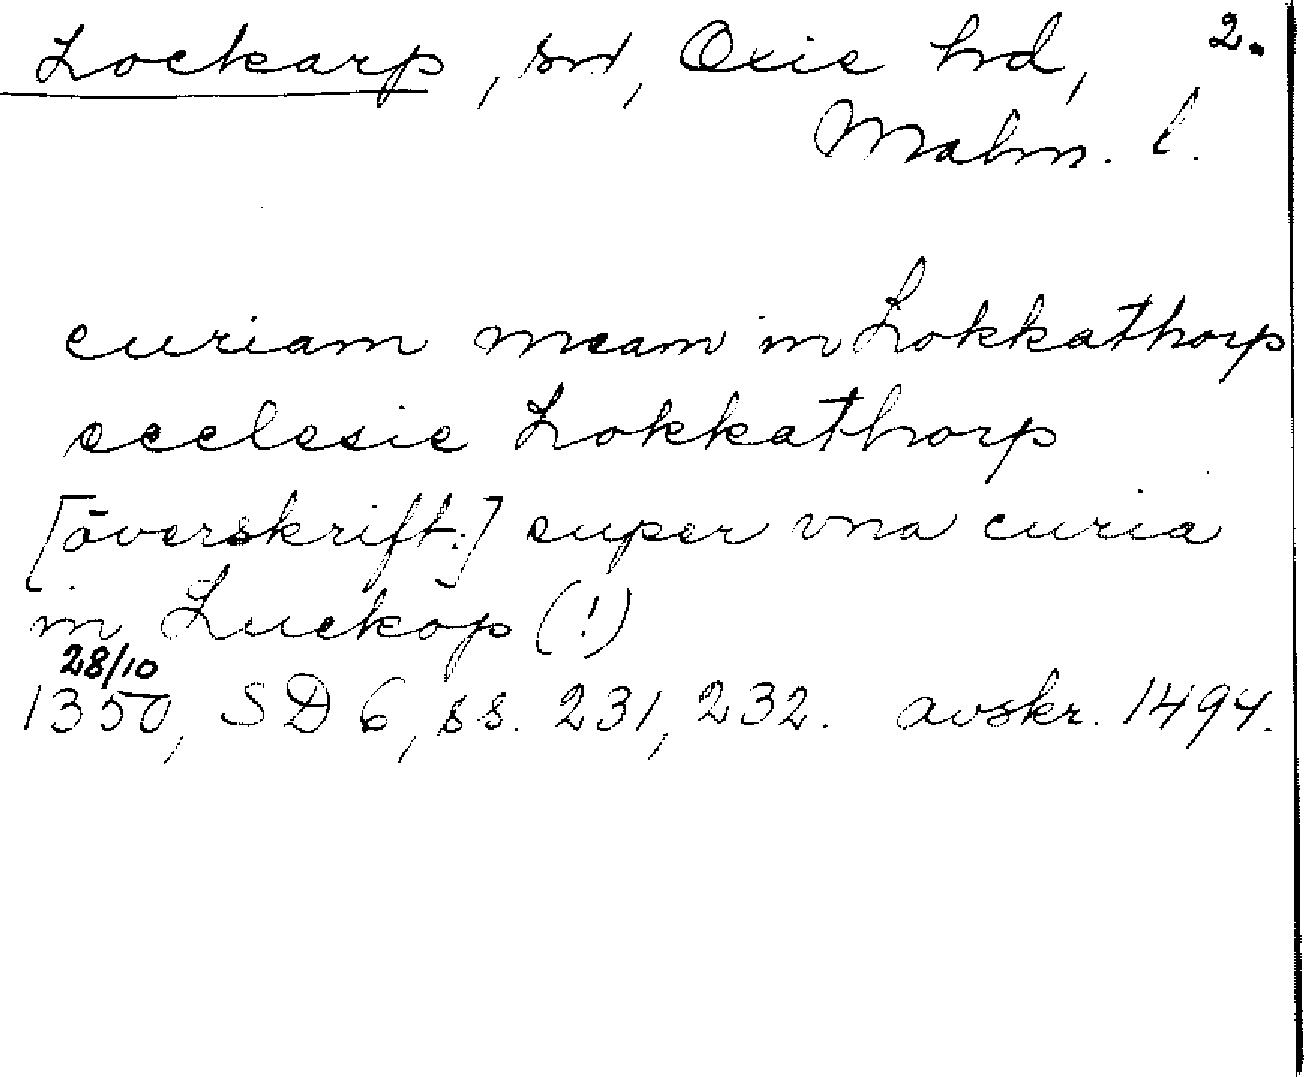 Lockarp, sn, Oxie hd, 2.
Malm. l.
curiam meam in Lokkathorp
ecclesie Lokkathorp
[överskrift:] super vna curia
in Luckop (!)
28/10
1350, SD 6, ss. 231, 232. avskr. 1494.